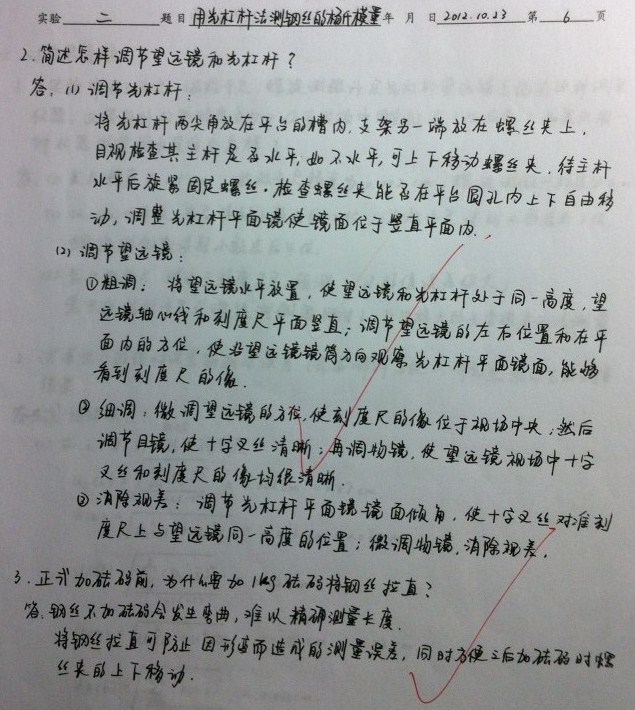 实验 二 题目 用光杠杆法测钢丝的杨氏模量 年 月 日 2012.10.23 第 6 页
2.简述怎样调节望远镜和光杠杆?
答:(1)调节光杠杆:
将光杠杆两尖角放在平台的槽内,支架另一端放在螺丝夹上,
目视检查其主杆是否水平,如不水平,可上下移动螺丝夹,待主杆
水平后旋紧固定螺丝.检查螺丝夹能否在平台圆孔内上下自由移
动,调整光杠杆平面镜使镜面位于竖直平面内.
(2)调节望远镜:
①粗调: 将望远镜水平放置,使望远镜和光杠杆处于同一高度,望
远镜轴心线和刻度尺平面竖直;调节望远镜的左右位置和在平
面内的方位,使沿望远镜镜筒方向观察光杠杆平面镜面,能够
看到刻度尺的像.
②细调:微调望远镜的方位,使刻度尺的像位于视场中央;然后
调节目镜,使十字叉丝清晰;再调物镜,使望远镜视场中十字
叉丝和刻度尺的像均很清晰.
③消除视差:调节光杠杆平面镜镜面倾角,使十字叉丝对准刻
度尺上与望远镜同一高度的位置;微调物镜,消除视差.
3.正式加砝码前,为什么要加1kg砝码将钢丝拉直?
答:钢丝不加砝码会发生弯曲,难以精确测量长度.
将钢丝拉直可防止因形变而造成的测量误差,同时方便之后加砝码时螺
丝夹的上下移动.